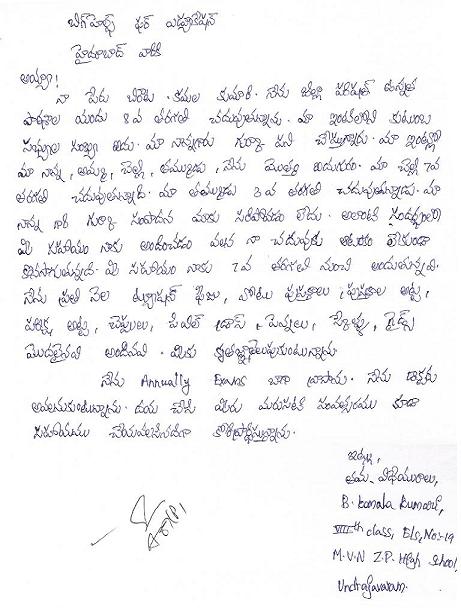 బిగ్ హెల్ప్ ఫర్ ఎడ్యుకేషన్
హైదరాబాద్ వారికి
అయ్యా!
నా పేరు బి. కమల కుమారి. నేను జిల్లా పరిషత్ ఉన్నత
పాఠశాల యందు 8 వ తరగతి చదువుతున్నాను. మా ఇంటిలోని కుటుంబ
సభ్యుల సంఖ్య ఐదు. మా నాన్నగారు గుర్కా పని చేస్తున్నారు. మా ఇంట్లో
మా నాన్న, అమ్మ, చెల్లి, తమ్ముడు, నేను మొత్తం ఐదుగురం. మా చెల్లి 7వ
తరగతి చదువుతున్నది. మా తమ్ముడు 3 వ తరగతి చదువుతున్నాడు. మా
నాన్న గారి గుర్కా సంపాదన మాకు సరిపోవడం లేదు. అలాంటి సందర్భంలో
మీ సహాయం నాకు అందించడం వలన నా చదువుకు ఆటంకం లేకుండా
కొనసాగుతున్నది. మీ సహాయం నాకు 7వ తరగతి నుంచి అందుతున్నవి.
నేను ప్రతి నెల ట్యూషన్ ఫీజు, నోటు పుస్తకాలు, పుస్తకాల అట్ట,
పరీక్ష అట్ట, చెప్పులు, పెన్సిల్ బాక్స్, పెన్నులు, స్కేళ్ళు, గైడ్స్
మొదలైనవి అందినవి. మీకు కృతజ్ఞతలు తెలుపుకుంటున్నాను
నేను Annually Exams బాగా వ్రాసాను. నేను డాక్టరు
అవ్వాలనుకుంటున్నాను. దయ చేసి మీరు మరుసటి సంవత్సరము కూడా
సహాయము చేయవలసినదిగా కోరి ప్రార్థిస్తున్నాను.
ఇట్లు,
తమ విధేయురాలు,
B. Kamala Kumari,
VIII th class, Bls, No:-19
M.V.N Z.P. High School,
Undrajavaram.